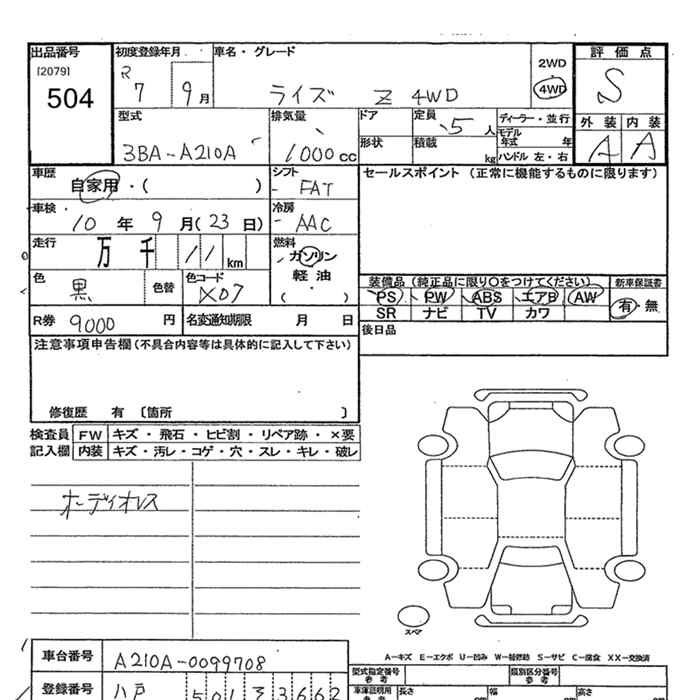 出品番号 初度登録年月 車名・グレード 評価点
[2079] 504 R 7 9月 ライズ Z 4WD 2WD 4WD S
型式 排気量 ドア 定員 5人 ディーラー・並行 外装 内装
3BA-A210A 1000cc 形状 積載 kg モデル年式 年 ハンドル 左・右 A A
車歴 シフト セールスポイント (正常に機能するものに限ります)
自家用・( ) FAT
車検 冷房
10年 9月(23日) AAC
走行 燃料
万 千 11 km ガソリン
軽油
( )
色 黒 色替 色コード X07 装備品 (純正品に限り○をつけてください) 新車保証書
PS PW ABS エアB AW 有・無
SR ナビ TV カワ
R券 9000円 名変通知期限 月 日 後日品
注意事項申告欄(不具合内容等は具体的に記入して下さい)
修復歴 有 〔箇所 〕
検査員 FW キズ・飛石・ヒビ割・リペア跡・×要
記入欄 内装 キズ・汚レ・コゲ・穴・スレ・キレ・破レ
オーディオレス
スペア
A-キズ E-エクボ U-凹み W-補修跡 S-サビ C-腐食 XX-交換済
車台番号 A210A-0099708 型式指定番号 参考 類別区分番号 参考
登録番号 八戸 501 ヌ 3662 車庫証明用 参考 長さ cm 幅 cm 高さ cm